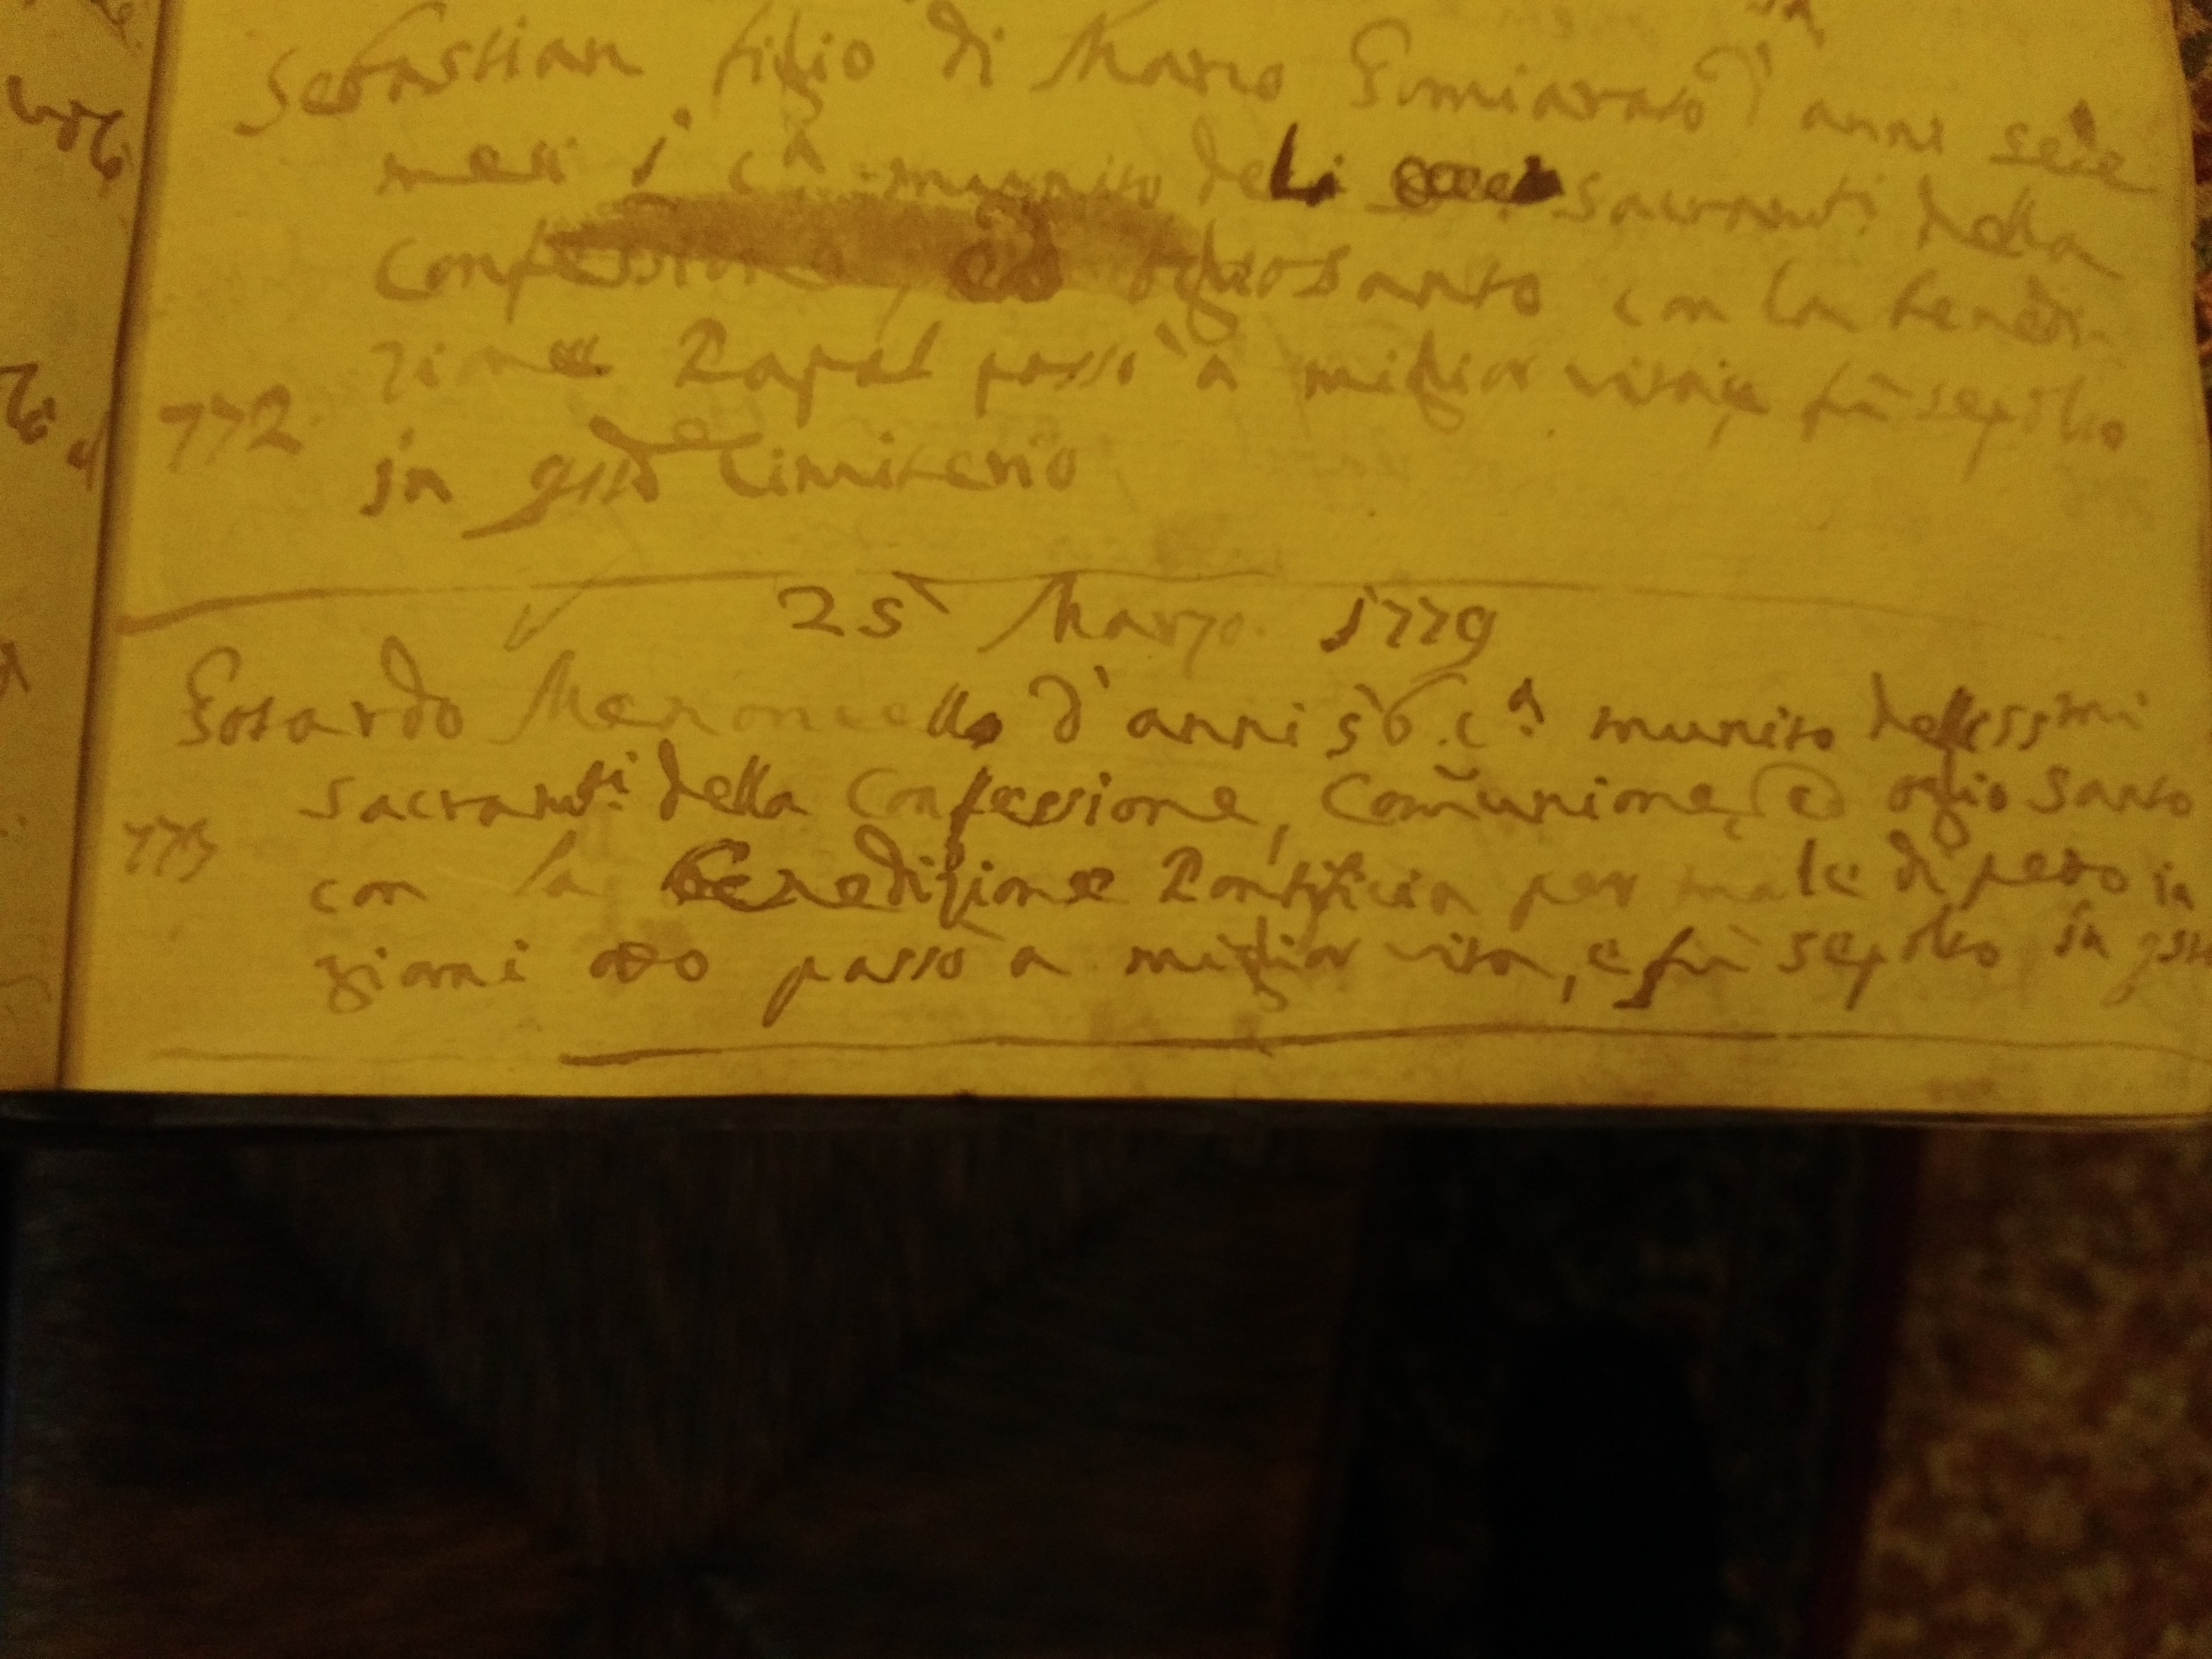 Sebastian figlio di Marco d'anni seïe
mesi j cᵃ munito delli Sacramti della
Confessione, ed ogliosanto con la benedi-
zione Papal passò à miglior vita, e fù sepolto
772.
in qsto Cimiterio
25 Marzo. 1779
Gotardo d'anni 56. cᵃ munito dellissmi
sacramti della Confessione, Com̃unione, e oglio santo
773
con la Benedizione Pontificia per male di peto in
giorni oto passò à miglior vita, e fù sepolto in qsto